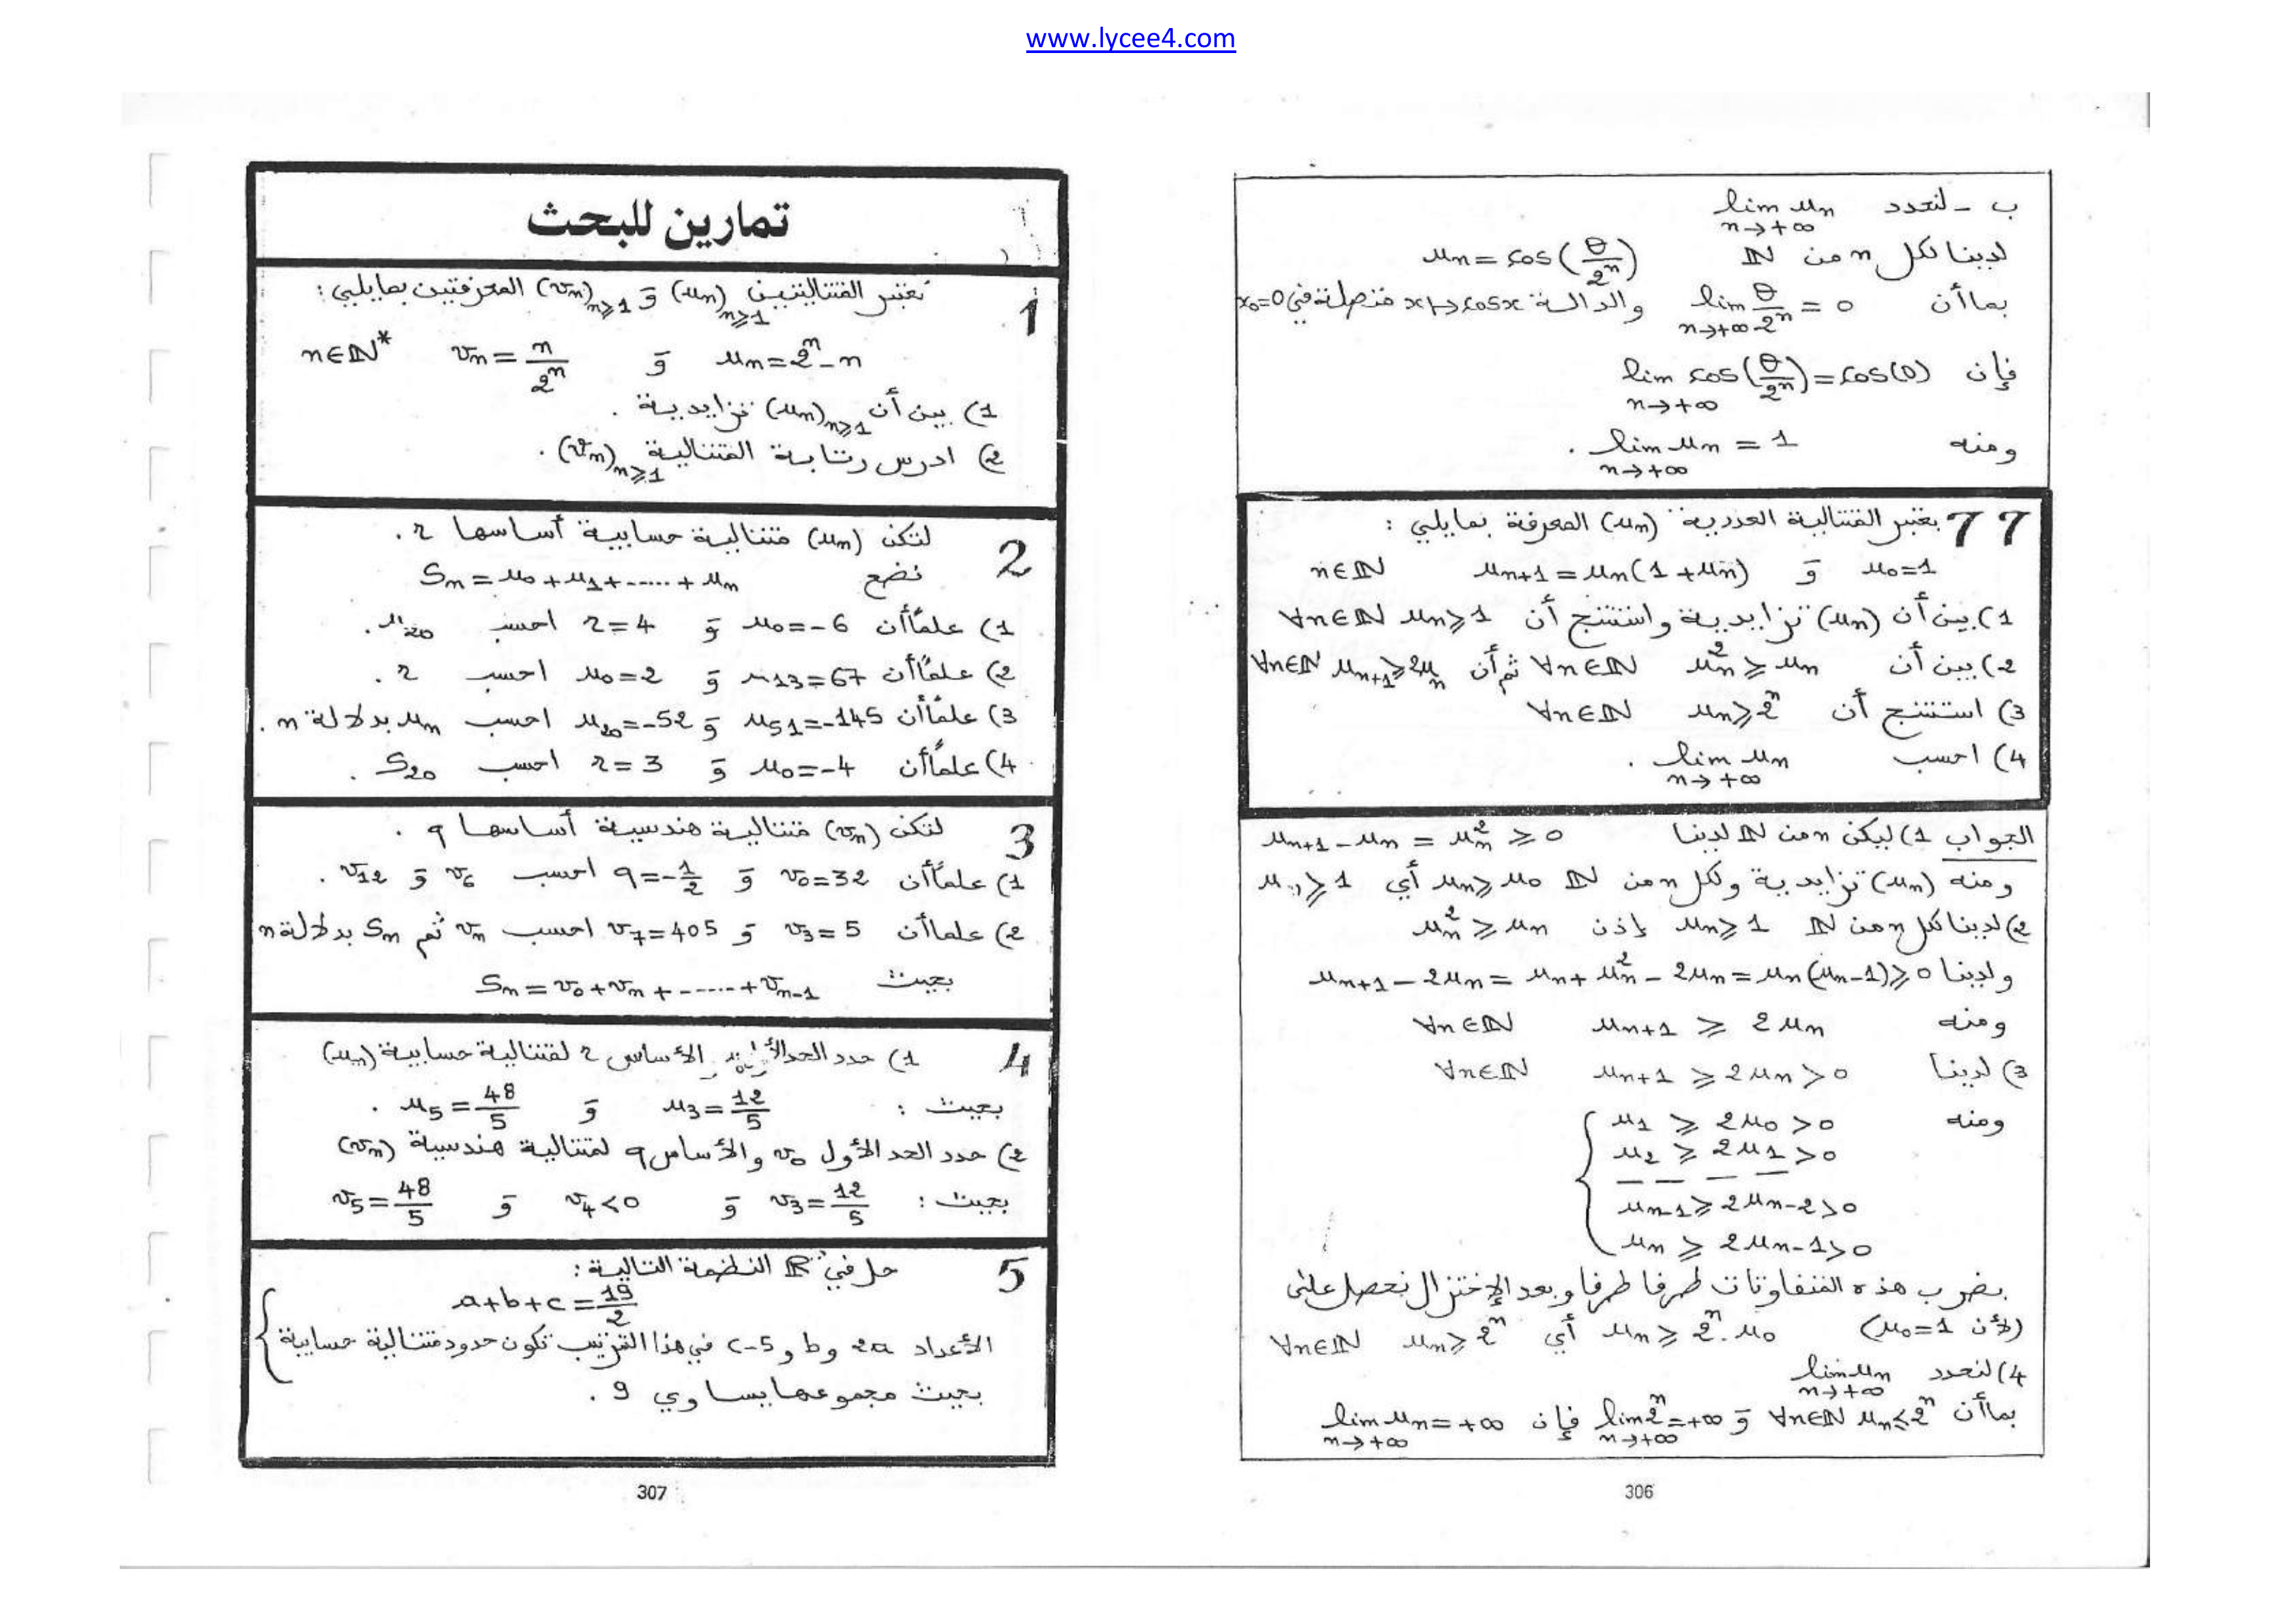 www.lycee4.com
ب - لنحدد lim un n→+∞
لدينا لكل n من ℕ un = cos(θ/2^n)
بما أن lim θ/2^n = 0 n→+∞ والدالة x↦cosx متصلة في x0=0
فإن lim cos(θ/2^n) = cos(0) n→+∞
ومنه lim un = 1 n→+∞ .
77 نعتبر المتتالية العددية (un) المعرفة بمايلي :
u0=1 و un+1 = un(1+un) n∈ℕ
1) بين أن (un) تزايدية واستنتج أن ∀n∈ℕ un⩾1
2) بين أن ∀n∈ℕ un²⩾un ثم أن ∀n∈ℕ un+1⩾2un
3) استنتج أن ∀n∈ℕ un⩾2^n
4) احسب lim un n→+∞ .
الجواب 1) ليكن n من ℕ لدينا un+1 - un = un² ⩾ 0
ومنه (un) تزايدية ولكل n من ℕ un⩾u0 أي un⩾1
2) لدينا لكل n من ℕ un⩾1 إذن un²⩾un
ولدينا un+1 - 2un = un + un² - 2un = un(un-1)⩾0
ومنه un+1 ⩾ 2un ∀n∈ℕ
3) لدينا un+1 ⩾ 2un > 0 ∀n∈ℕ
ومنه u1 ⩾ 2u0 > 0
u2 ⩾ 2u1 > 0
— — — —
un-1 ⩾ 2un-2 > 0
un ⩾ 2un-1 > 0
بضرب هذه المتفاوتات طرفا طرفا وبعد الإختزال نحصل على
un ⩾ 2^n.u0 أي ∀n∈ℕ un⩾2^n (لأن u0=1)
4) لنحدد lim un n→+∞
بما أن ∀n∈ℕ un⩽2^n و lim 2^n=+∞ n→+∞ فإن lim un=+∞ n→+∞
306
تمارين للبحث
1 نعتبر المتتاليتين (un)n⩾1 و (vn)n⩾1 المعرفتين بمايلي :
un = 2^n - n و vn = n/2^n n∈ℕ*
1) بين أن (un)n⩾1 تزايدية .
2) ادرس رتابة المتتالية (vn)n⩾1 .
2 لتكن (un) متتالية حسابية أساسها r .
نضع Sn = u0 + u1 + ..... + un
1) علما أن u0=-6 و r=4 احسب u20 .
2) علما أن u13=67 و u0=2 احسب r .
3) علما أن u51=-145 و u20=-52 احسب un بدلالة n .
4) علما أن u0=-4 و r=3 احسب S20 .
3 لتكن (vn) متتالية هندسية أساسها q .
1) علما أن v0=32 و q=-1/2 احسب v6 و v12 .
2) علما أن v3=5 و v7=405 احسب vn ثم Sn بدلالة n
بحيث Sn = v0 + vn + ..... + vn-1
4 1) حدد الحد الأساس r لمتتالية حسابية (un)
بحيث : u3=12/5 و u5=48/5 .
2) حدد الحد الأول v0 والأساس q لمتتالية هندسية (vn)
بحيث : v3=12/5 و v4<0 و v5=48/5
5 حل في ℝ النظمة التالية :
a+b+c = 19/2
الأعداد 2a و b و c-5 في هذا الترتيب تكون حدود متتالية حسابية
بحيث مجموعها يساوي 9 .
307